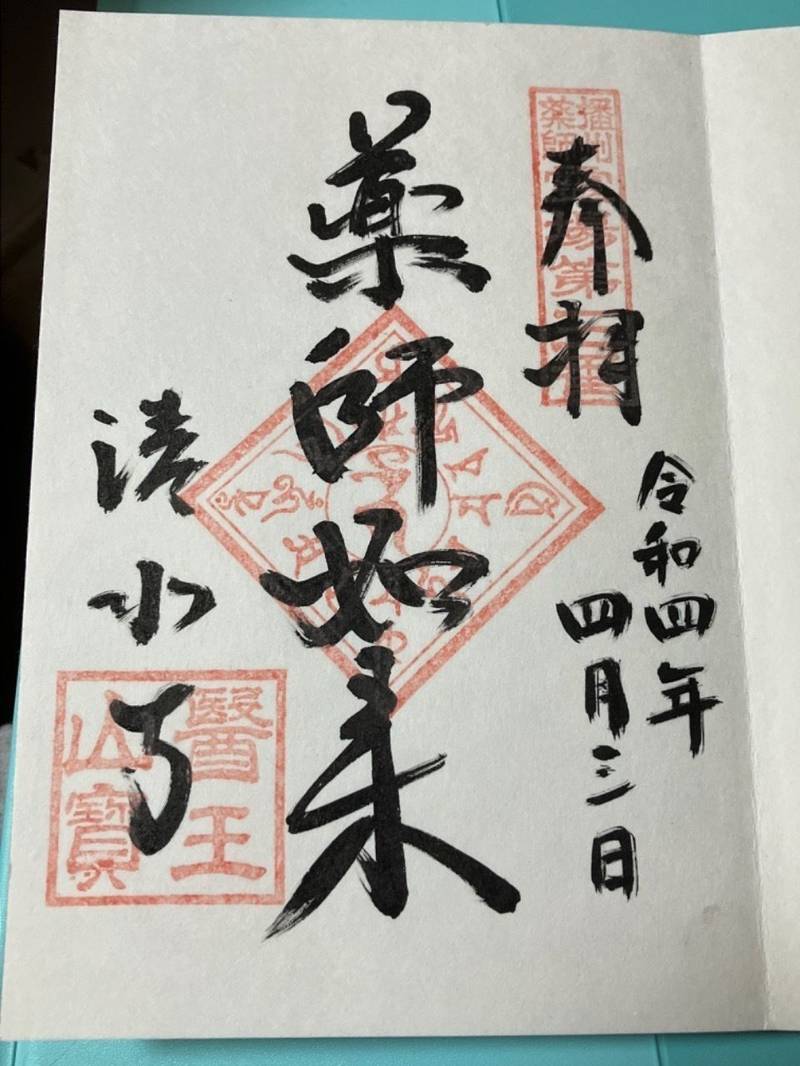 奉拝
令和四年
四月三日
薬師如来
清水寺
醫王
山寶